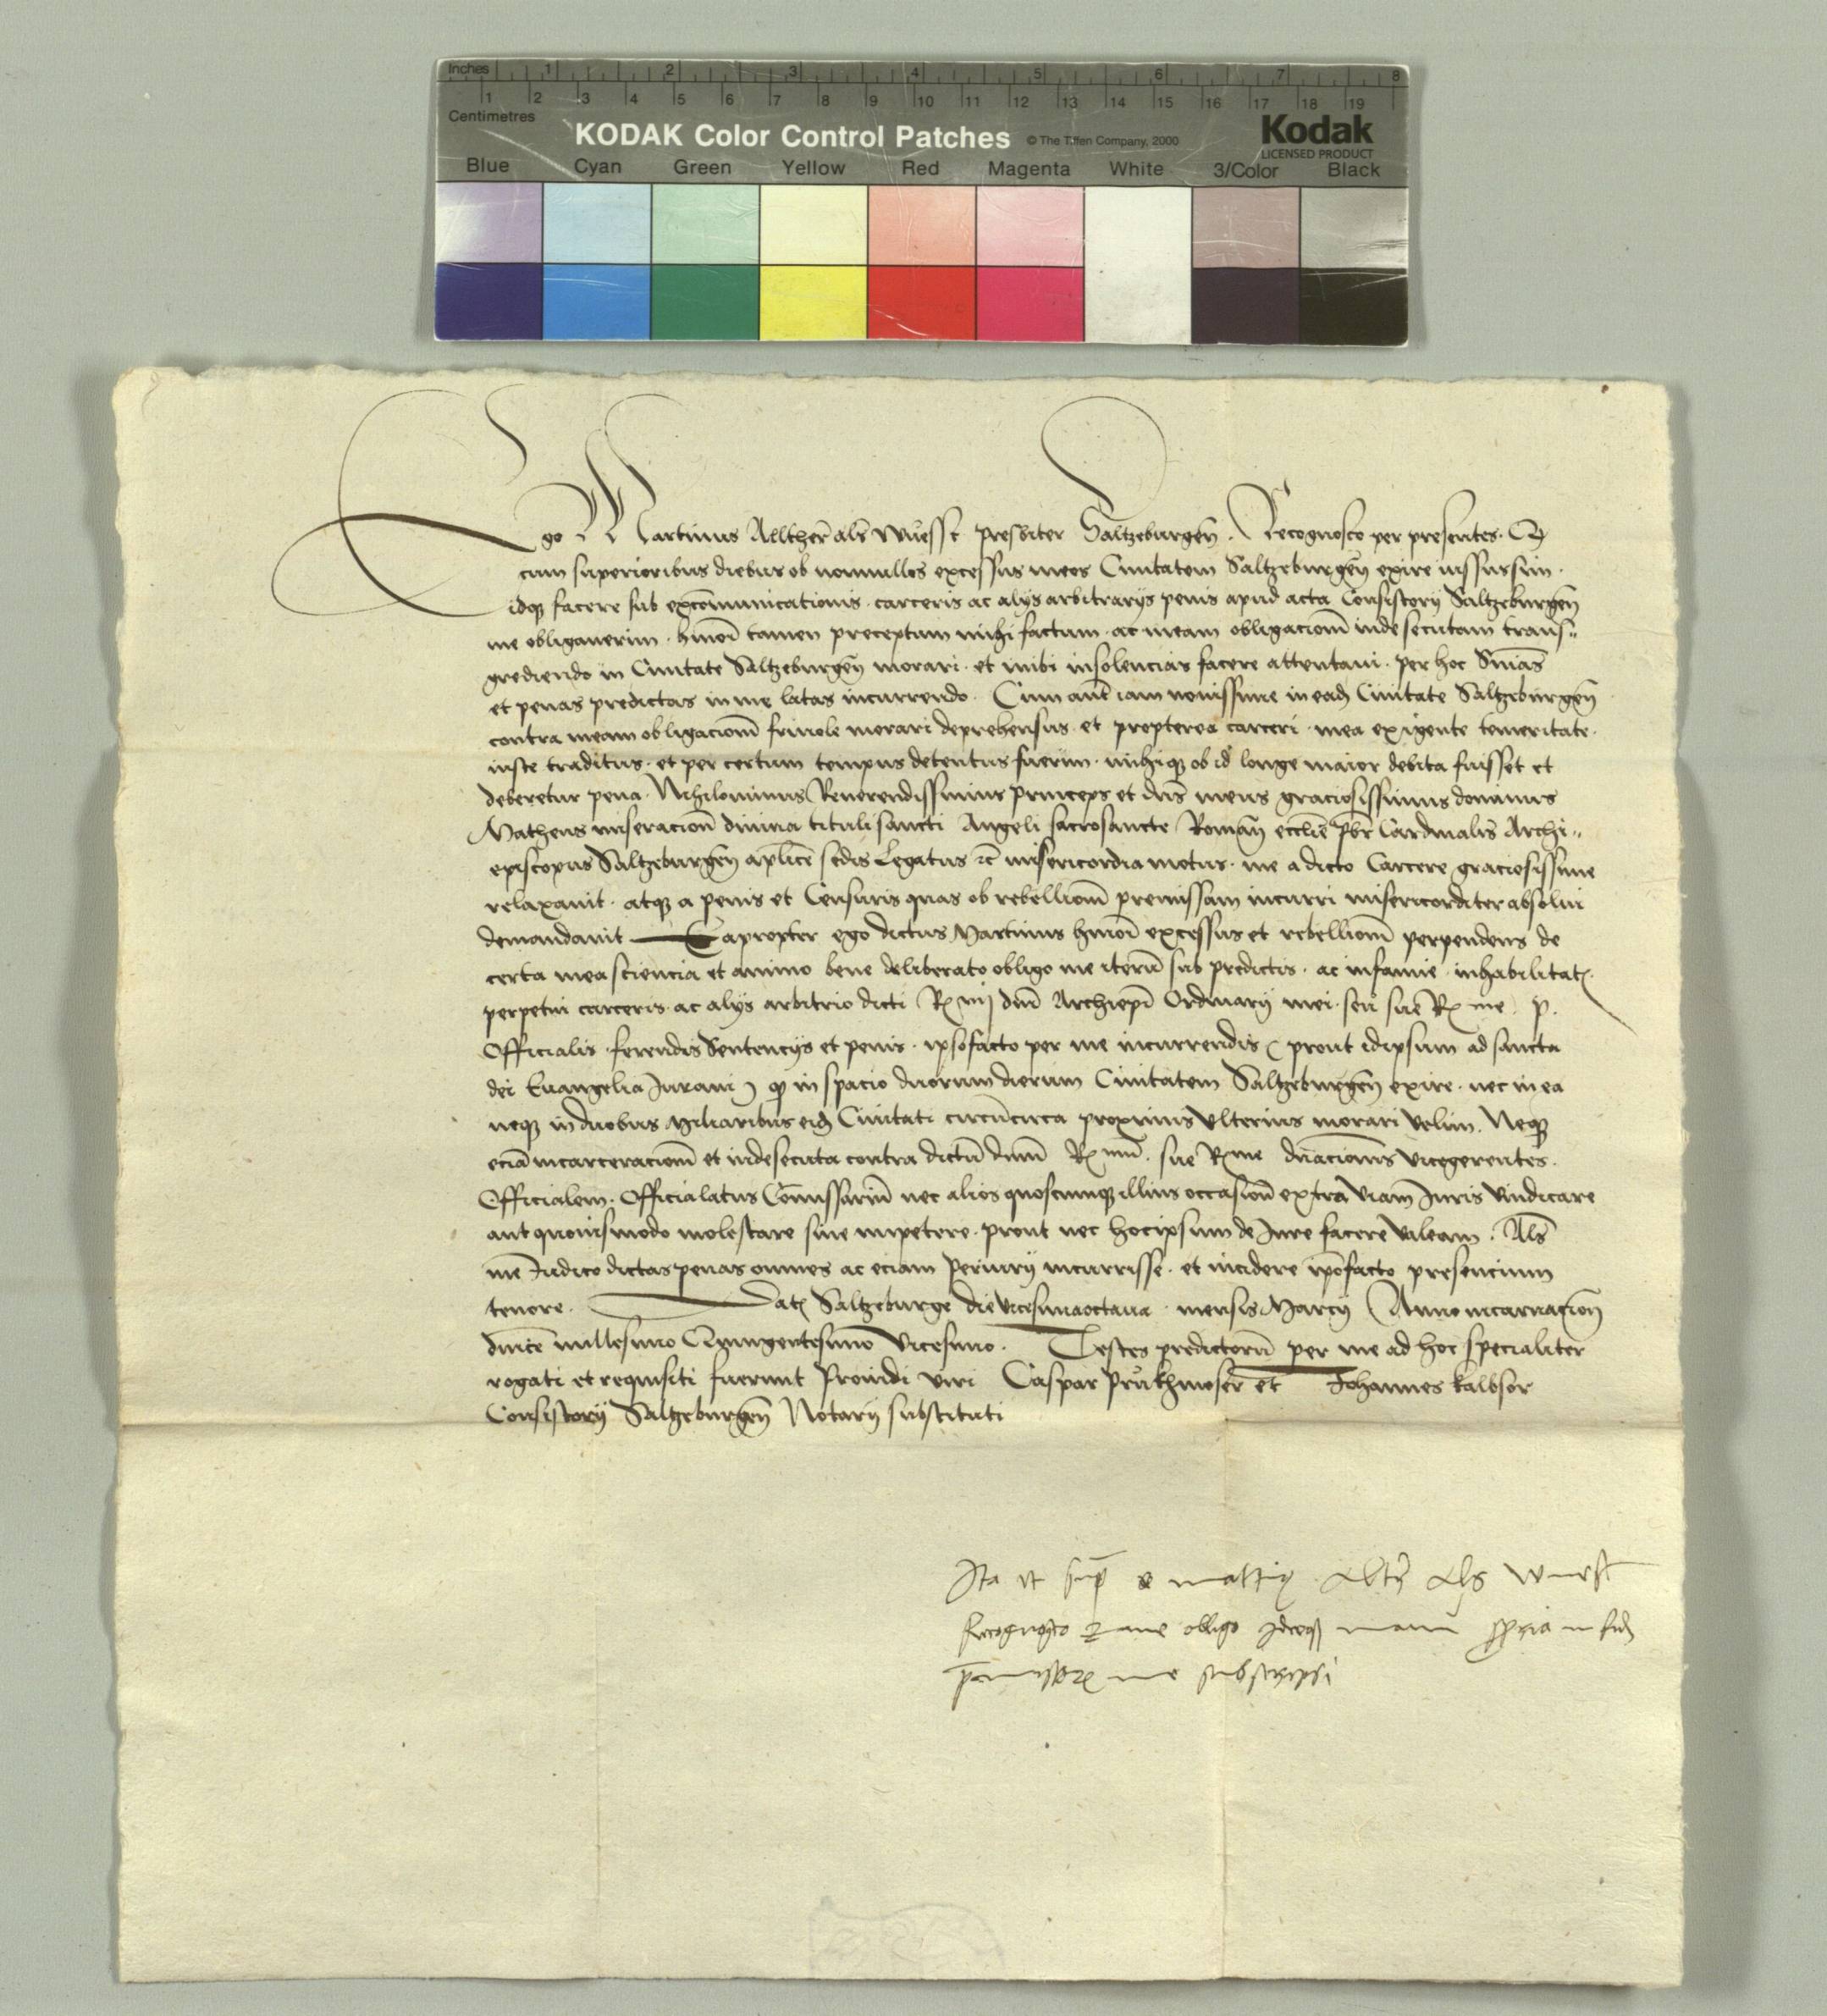 Inches 1 2 3 4 5 6 7 8
1 2 3 4 5 6 7 8 9 10 11 12 13 14 15 16 17 18 19
Centimetres
KODAK Color Control Patches © The Tiffen Company, 2000 Kodak
LICENSED PRODUCT
Blue Cyan Green Yellow Red Magenta White 3/Color Black
Ego Martinus Allther̄ als̄ Wuesst presbiter Saltzeburgen̄. Recognosco per presentes. Q
cum superioribus diebus ob nonnullos excessus meos Ciuitatem Saltzeburgen̄ exire iussus sim.
idq̨ facere sub excōmunicationis. carceris ac alijs arbitrarijs penis apud acta Consistorij Saltzeburgen̄
me obligauerim. hmoī tamen preceptum michi factum. ac meam obligacionē inde secutam trans=
grediendo in Ciuitate Saltzeburgen̄ morari. et inibi insolencias facere attentaui. per hoc Snīas
et penas predictas in me latas incurrendo. Cum aut̄ iam nouissime in ead̨ Ciuitate Saltzeburgen̄
contra meam obligacionē friuole morari deprehensus. et propterea carceri. mea exigente temeritate.
iuste traditus. et per certum tempus detentus fuerim. michiq̨ ob id longe maior debita fuisset et
deberetur pena. Nihilominus Reuerendissimus princeps et dn̄s meus graciosissimus dominus
Matheus miseracion̄ diuina tituli sancti Angeli sacrosancte Roman̄ ecclīe pbr̄ Cardinalis Archi=
episcopus Saltzeburgen̄ aplīce sedis Legatus ꝛc̄ misericordia motus. me a dicto Carcere graciosissime
relaxauit. atq̨ a penis et Censuris quas ob rebellionē premissam incurri misericorditer absolui
demandauit Eapropter ego dictus Martinus hmoī excessus et rebellionē perpendens de
certa mea sciencia et animo bene deliberato obligo me iterū sub predictis. ac infamie. inhabilitat̨.
perpetui carceris. ac alijs arbitrio dicti R̨ mj dnī Archiepī Ordinarij mei. seu sue R̨ me. p.
Officialis. ferendis Sentencijs et penis. ipso facto per me incurrendis (prout idipsum ad sancta
dei Euangelia Iuraui) q̨ in spacio duorum dierum Ciuitatem Saltzeburgen̄ exire. nec in ea
neq̨ in duobus Miliaribus eid̨ Ciuitati circūcirca proximis Vlterius morari velim. Neq̨
eciā incarceracionē et inde secuta contra dictū dnūm R̨ mū. sue R̨me dn̄acionis vicegerentes.
Officialem. Officialatus Cōmissariū nec alios quoscumq̨ illius occasion̄ extra Viam Iuris Vindicare
aut quouismodo molestare siue impetere. prout nec hocipsum de Iure facere Valeam. Als̄
me Iudico dictas penas omnes ac eciam Periurij incurrisse. et incidere ip̄o facto presencium
tenore. Dat̨ Saltzeburge die vicesimaoctaua. mensis Marcij Anno incarnacion̄
dnīce millesimo Quingentesimo Vicesimo. Testes predictorū per me ad hoc specialiter
rogati et requisiti fuerunt Prouidi viri Caspar Prukhmoser et Johannes Kalbsor
Consistorij Saltzeburgen̄ Notarij substituti
Ita vt sup̄ Als wuest
Recognosco me obligo Ideoq̨ manu ꝓpria in fid̨
p̄missorꝝ me subscripsi